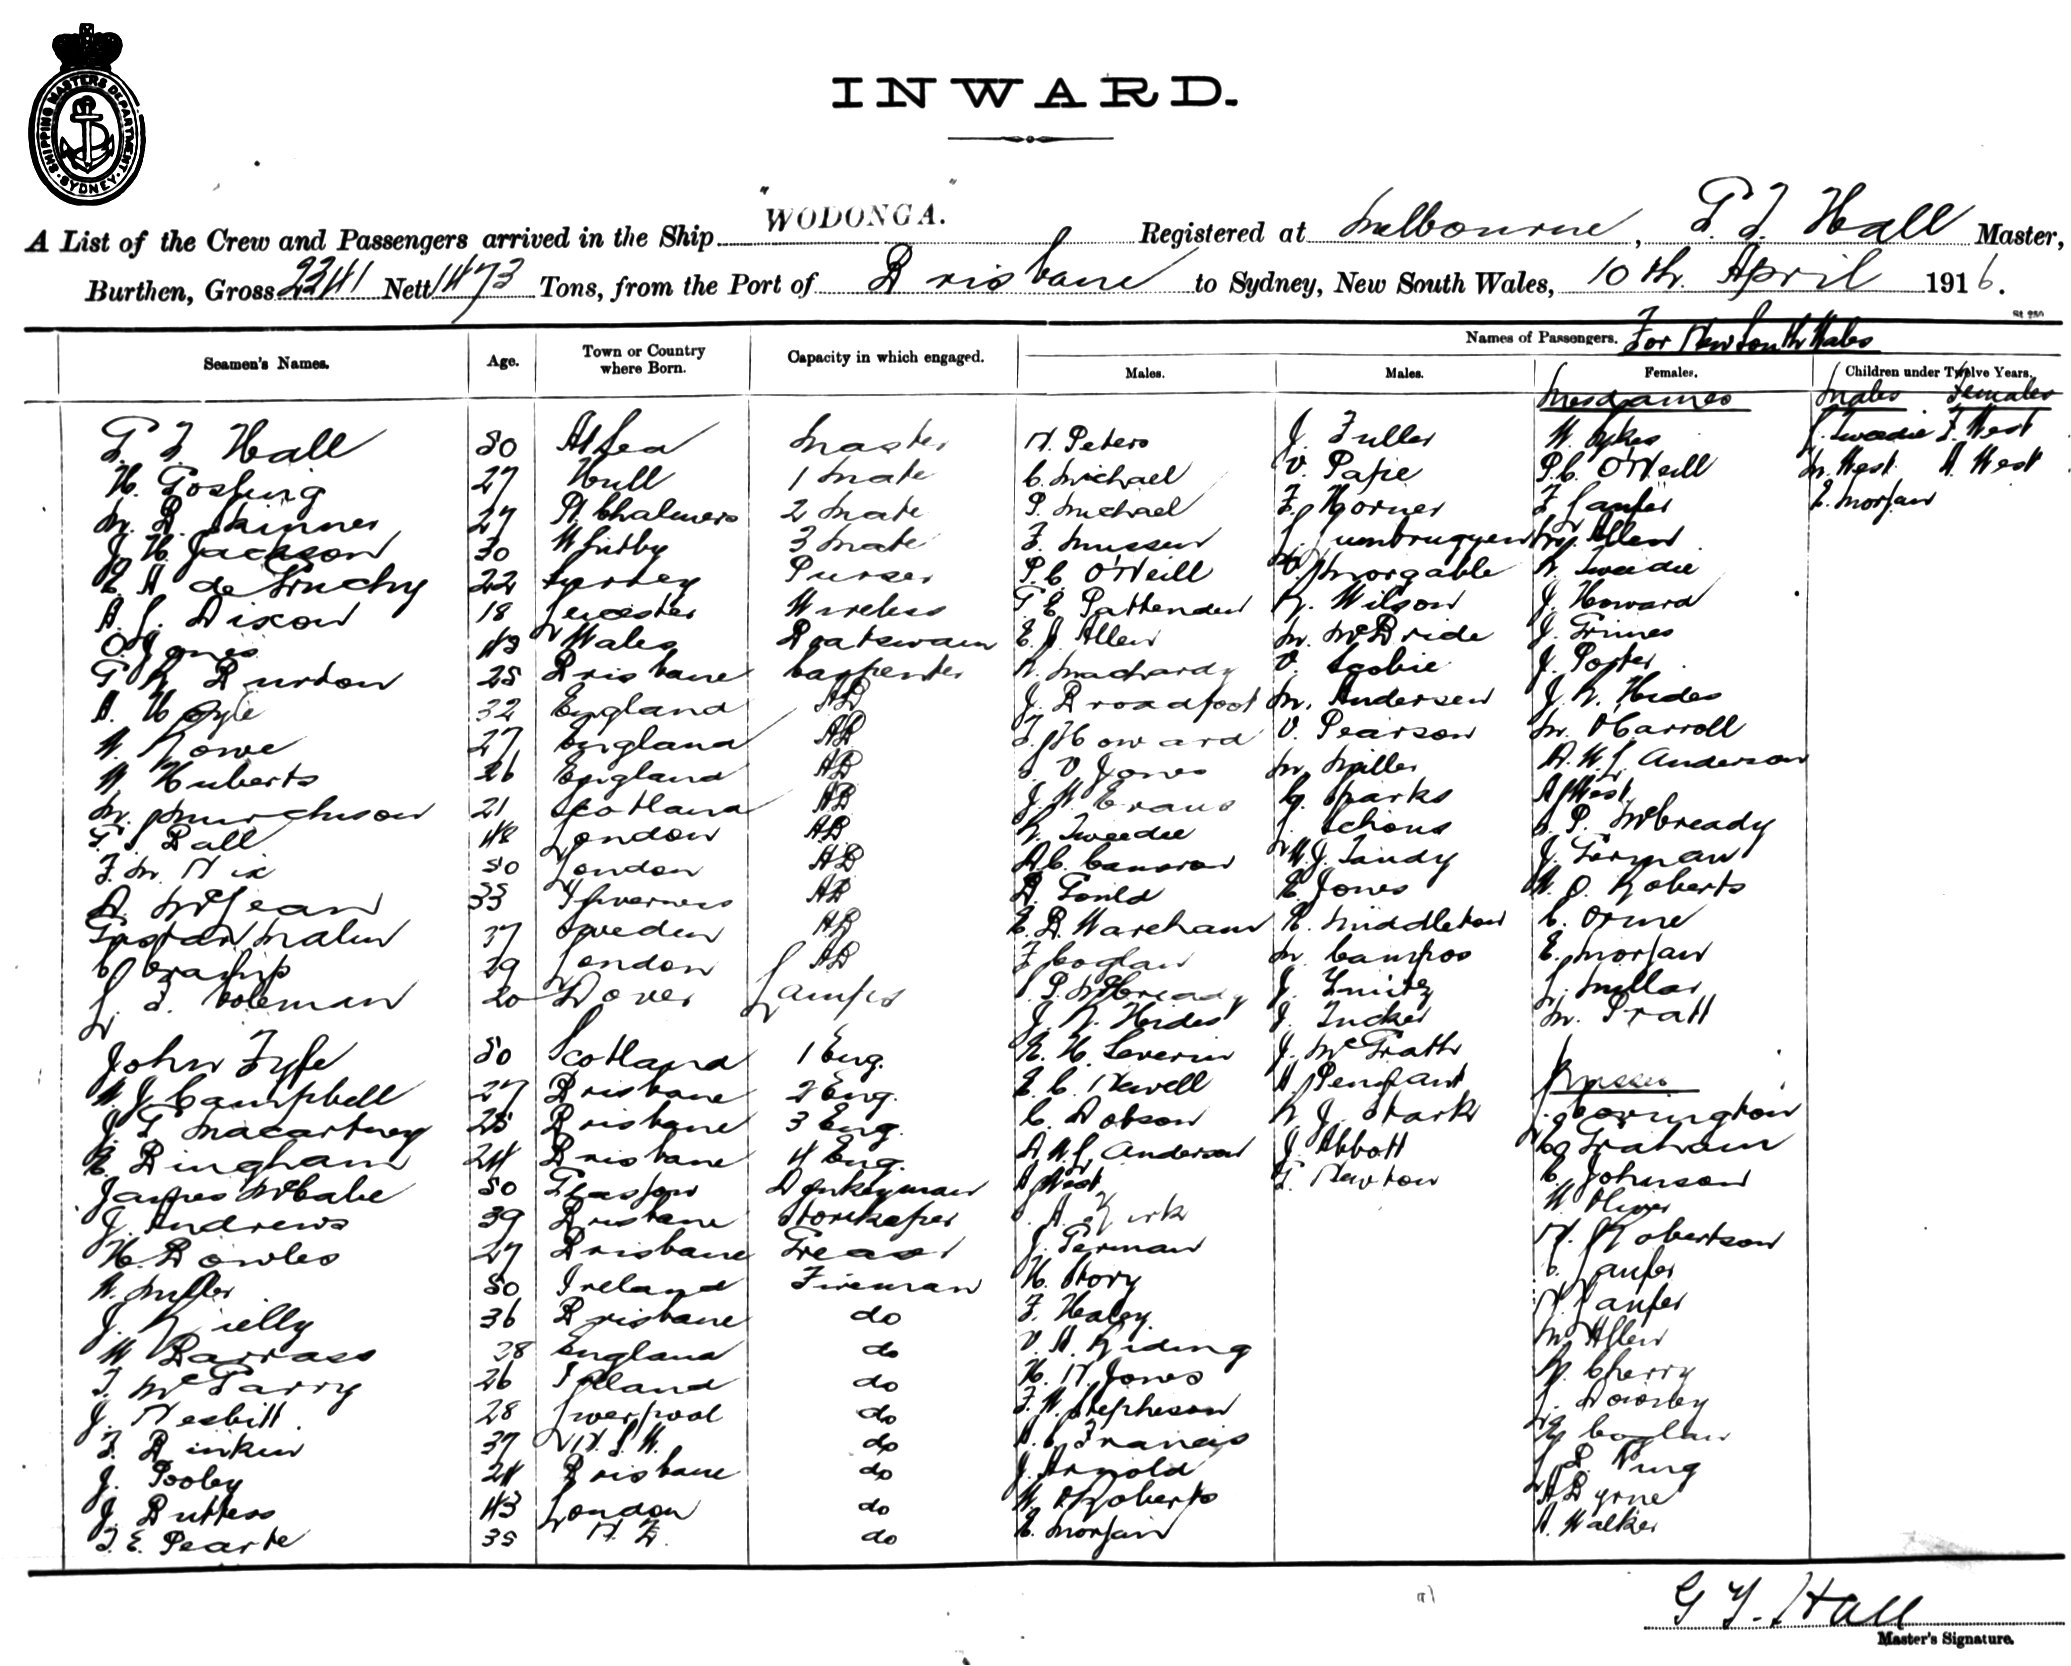 SHIPPING MASTERS DEPARTMENT. SYDNEY.
INWARD.
A List of the Crew and Passengers arrived in the Ship "WODONGA." Registered at Melbourne, G. Y. Hall Master,
Burthen, Gross 2341 Nett 1473 Tons, from the Port of Brisbane to Sydney, New South Wales, 10th. April 1916.
Names of Passengers. For New South Wales
Seamen's Names. Age. Town or Country where Born. Capacity in which engaged. Males. Males. Females. Children under Twelve Years.
Mesdames Males Females
G. Y. Hall 50 At Sea Master N. Peters J. Fuller W. Sykes J. Tweedie F. West
H. Gosling 27 Hull 1 Mate C. Michael V. Papie P. C. O'Neill M. West A. West
M. B. Skinner 27 Pt Chalmers 2 Mate P. Michael F. Horner F. E. Morgan
J. H. Jackson 30 Whitby 3 Mate F. Allen
E. A. de Gruchy 22 Purser P. C. O'Neill R. Tweedie
A. L. Dixon 18 Leicester Wireless G. E. Pattenden R. Wilson J. Howard
O. Jones 43 Wales Boatswain E. J. Allen M. McBride J. Grimes
G. R. Burton 25 Brisbane Carpenter R. Machardy V. Scobie J. Porter
A. Hoyle 32 England AB J. Broadfoot M. Andersen J. R. Hides
W. Rowe 27 England AB Howard V. Pearson M. O'Carroll
W. Huberts 26 England AB V. Jones M. Miller A. W. L. Anderson
M. Murchison 21 Scotland AB J. W. Evans G. Sparks A. West
Ball 48 London AB R. Tweedie L. Schous P. McCready
F. M. Nix 50 London AB A. C. Cameron W. J. Tandy J. German
A. McLean 33 Inverness AB B. Gould E. Jones W. O. Roberts
Gustav Malm 37 Sweden AB E. B. Wareham E. Middleton C. Orme
C. Cramp 29 London AB F. Coglan M. Campos E. Morgan
L. F. Coleman 20 Dover Lamps P. McCready J. L. Millar
J. R. Hides J. Tucker M. Pratt
John Fyfe 50 Scotland 1 Eng. E. H. Severin J. McGrath
W. J. Campbell 27 Brisbane 2 Eng. E. C. Newell A. Pengant Misses
J. G. Macartney 25 Brisbane 3 Eng. C. Dobson R. J. Stark L. Covington
E. Bingham 24 Brisbane 4 Eng. A. W. L. Anderson J. Abbott C. Graham
James McCabe 50 Glasgow Donkeyman A. West Newton C. Johnson
J. Andrews 39 Brisbane Storekeeper A. Kirk W. Oliver
H. Bowles 27 Brisbane Greaser J. German N. Robertson
W. Miller 50 Ireland Fireman H. Story
J. Rielly 36 Brisbane do F. Healey
W. Barrass 38 England do V. A. Riding M. Allen
T. McGarry 26 Ireland do H. N. Jones Cherry
J. Nesbitt 28 Liverpool do F. W. Stephenson
F. Binkin 37 N.S.W. do A. C. Francis Coglan
J. Pooley 24 Brisbane do J. Arnold
J. Buttess 43 London do W. O. Roberts A. Byrne
T. E. Pearte 35 N.Z. do E. Morgan A. Walker
G Y. Hall
Master's Signature.